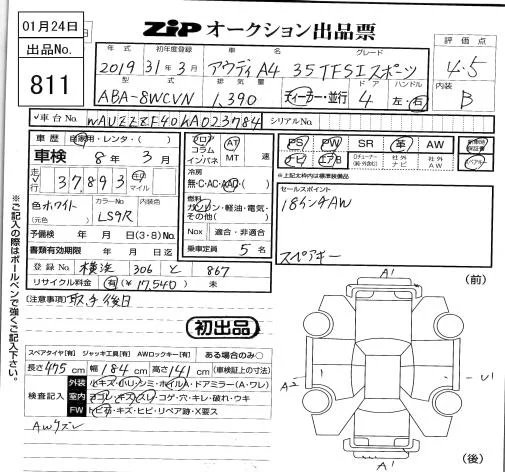 01月24日
ZIP オークション出品票
出品No.
811
年式 初年度登録 車名 グレード 評価点
2019 31年3月 アウディ A4 35 TFSI スポーツ 4.5
型式 排気量 ドア ハンドル 内装
ABA-8WCVN 1,390 ディーラー・並行 4 左・右 B
車台No. WAUZZZF40KA023784 シリアルNo.
車歴 自家用・レンタ・( ) フロア コラム インパネ AT MT 速
PS PW SR 革 AW 新車時保証書
車検 8年 3月
ナビ エアB Dチューナー(純・外含む) 社外ナビ 社外AW 記録簿
走行 37,893 キロ マイル
冷房
無・C・AC・AAC・( )
※上記太枠は標準装備品
セールスポイント
18インチAW
スペアキー
色 ホワイト (元色) カラーNo. LS9R 内装色
燃料
ガソリン・軽油・電気・その他( )
予備検 年 月 日(3・8)No.
Nox 適合・非適合
書類有効期限 年 月 日迄
乗車定員 5 名
登録No. 横浜 306 と 867
リサイクル料金 有(¥17,540) 未
【注意事項】取、手 後日
初出品
※ご記入の際はボールペンで強くご記入下さい。
スペアタイヤ【有】 ジャッキ工具【有】 AWロックキー【有】 ある場合のみ○
長さ 475 cm 幅 184 cm 高さ 141 cm (車検証上の寸法)
検査記入
外装 小キズ・小ハリ・シミ・ホイルA・ドアミラー(A・ワレ)
室内 ヨゴレ・キズ・スレ・コゲ・穴・キレ・破れ・ウキ
FW トビ石・キズ・ヒビ・リペア跡・X要ス
AWクズレ
(前)
A1
A2
U1
A1
(後)